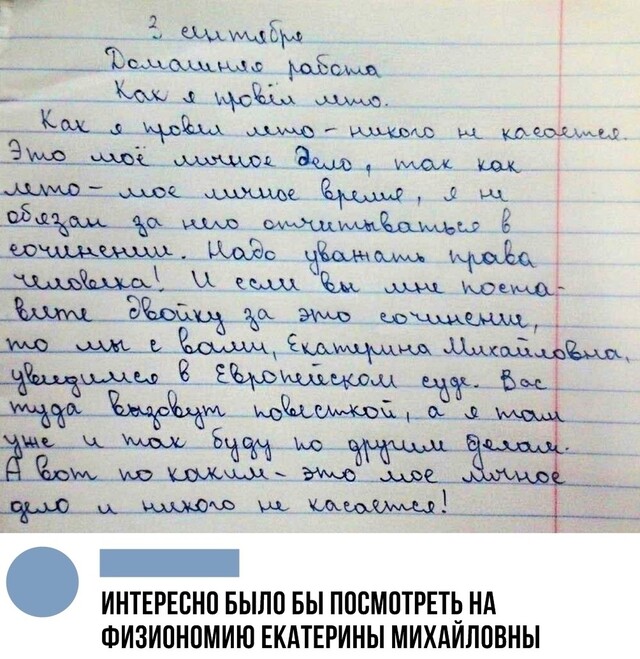 3 сентября
Домашняя работа
Как я провёл лето.
Как я провёл лето – никого не касается.
Это моё личное дело, так как
лето – мое личное время, я не
обязан за него отчитываться в
сочинении. Надо уважать права
человека! И если вы мне поста-
вите двойку за это сочинение,
то мы с вами, Екатерина Михайловна,
увидимся в Европейском суде. Вас
туда вызовут повесткой, а я там
уже и так буду по другим делам.
А вот по каким – это мое личное
дело и никого не касается!
ИНТЕРЕСНО БЫЛО БЫ ПОСМОТРЕТЬ НА
ФИЗИОНОМИЮ ЕКАТЕРИНЫ МИХАЙЛОВНЫ